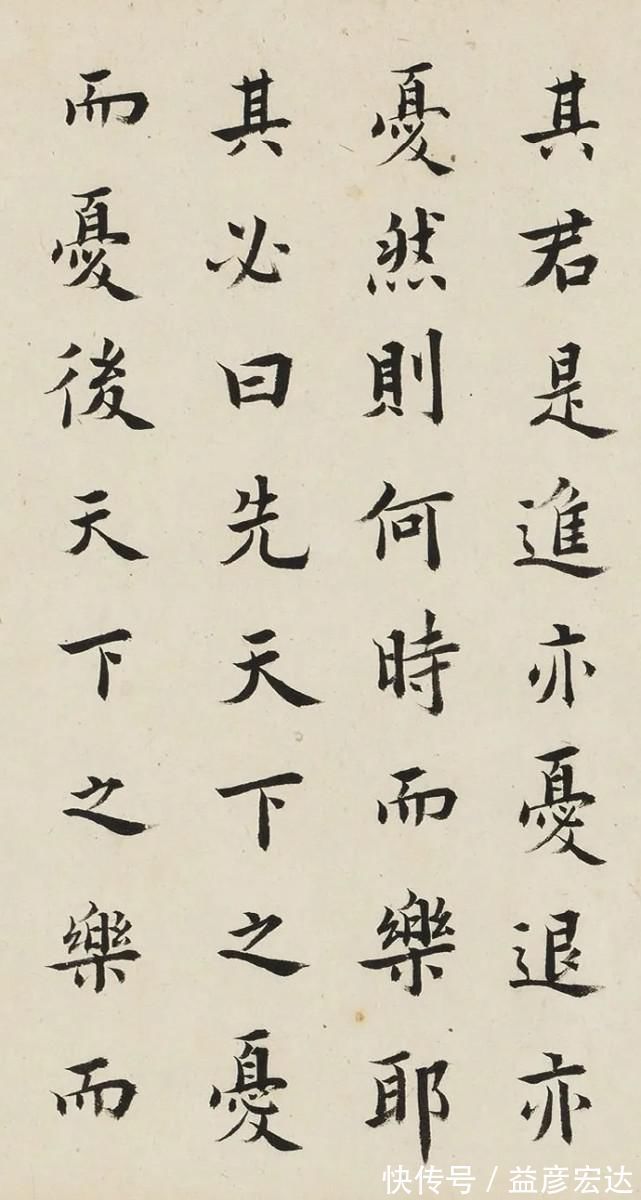 其君是進亦憂退亦
憂然則何時而樂耶
其必曰先天下之憂
而憂後天下之樂而
快传号 / 益彦宏达